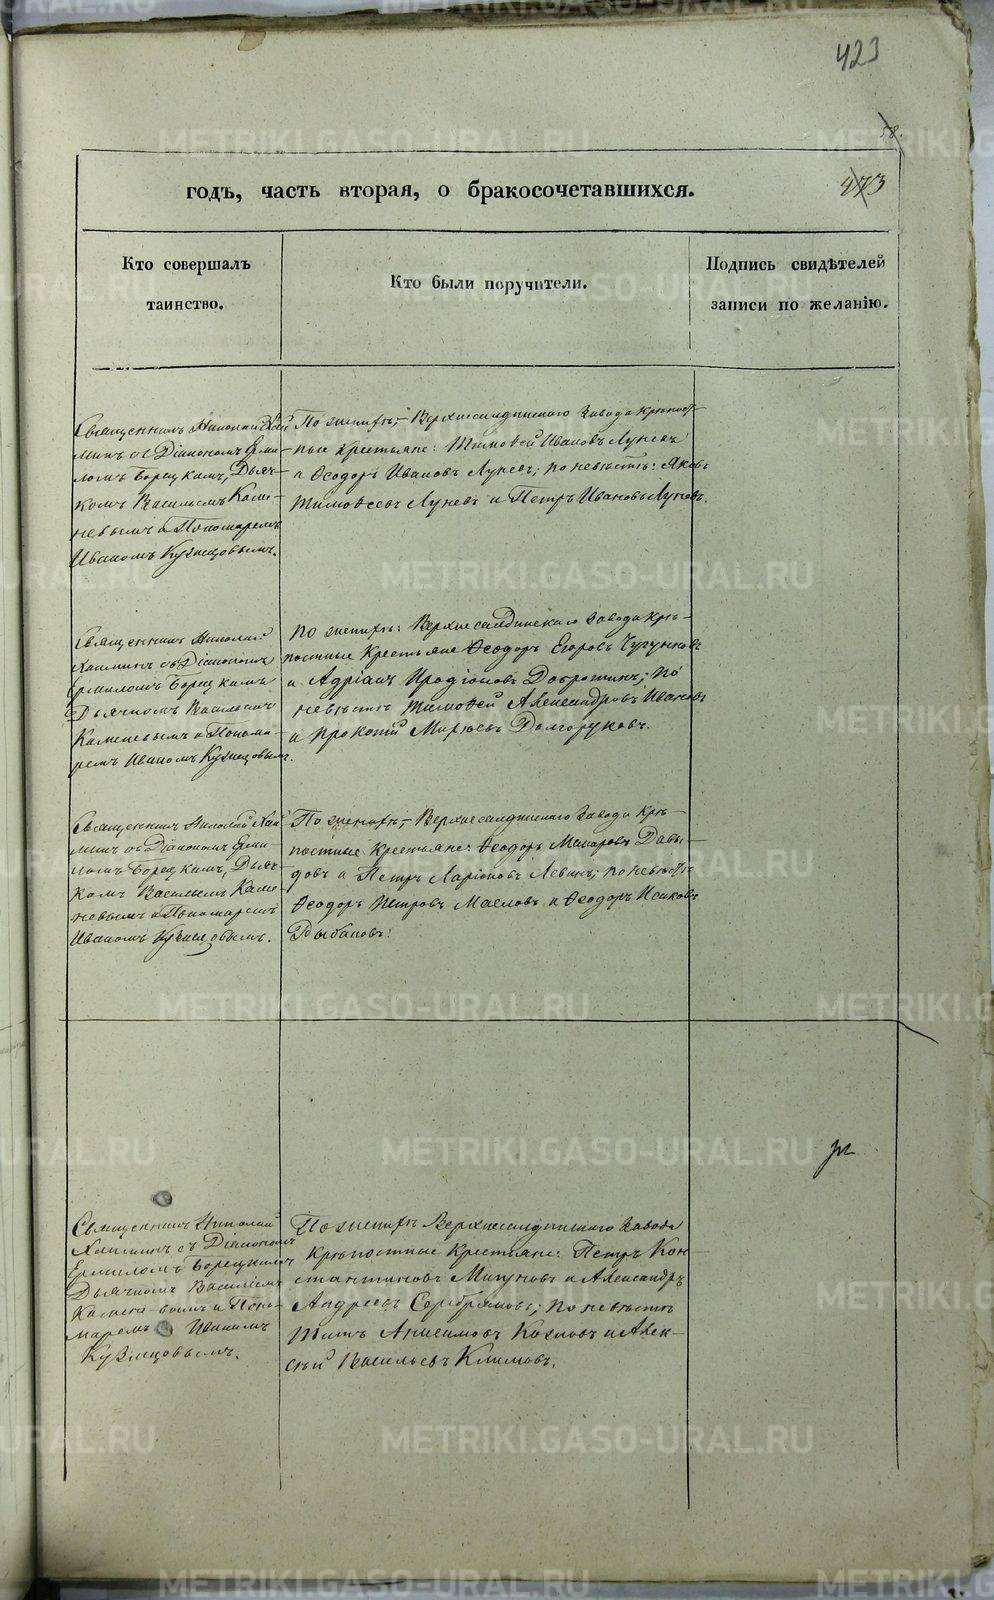 423
58.
473
годъ, часть вторая, о бракосочетавшихся.
Кто совершалъ
таинство.
Кто были поручители.
Подпись свидѣтелей
записи по желанію.
Священникъ Николай Хан
минъ съ Діакономъ Ерми-
ломъ Борецкимъ, Дьяч-
комъ Васильемъ Каме-
невымъ и Пономаремъ
Иваномъ Кузнецовымъ.
По женихѣ, Верхнесалдинскаго Завода крѣпост-
ные крестьяне: Тимоѳей Ивановъ Луневъ
и Ѳеодоръ Ивановъ Луневъ; по невѣстѣ: Яковъ
Тимоѳеевъ Луневъ и Петръ Ивановъ Луневъ.
Священникъ Николай
Ханминъ съ Діакономъ
Ермиломъ Борецкимъ
Дьячкомъ Васильемъ
Каменевымъ и Понома-
ремъ Иваномъ Кузнецовымъ.
По женихѣ: Верхнесалдинскаго Завода крѣ-
постные Крестьяне Ѳеодоръ Егоровъ Чугунковъ
и Адріанъ Иродіоновъ Добротинъ; по
невѣстѣ Тимоѳей Александровъ Ивановъ
и Прокопій Долгоруковъ.
Священникъ Николай Хан
минъ съ Діакономъ Ерми
ломъ Борецкимъ, Дьяч
комъ Васильемъ Каме-
невымъ и Пономаремъ
Иваномъ Кузнецовымъ.
По женихѣ, Верхнесалдинскаго Завода крѣ-
постные крестьяне: Ѳеодоръ Макаровъ Давы-
довъ и Петръ Ларіоновъ Левинъ; по невѣстѣ
Ѳеодоръ Петровъ Масловъ и Ѳеодоръ Исаковъ
Рыбаковъ.
Священникъ Николай
Ханминъ съ Діакономъ
Ермиломъ Борецкимъ
Дьячкомъ Василіемъ
Каменевымъ и Поно-
маремъ Иваномъ
Кузнецовымъ.
По женихѣ Верхнесалдинскаго Завода
Крѣпостные Крестьяне: Петръ Кон
стантиновъ Мигуновъ и Александръ
Андреевъ Серебряковъ; по невѣстѣ
Титъ Анисимовъ Козловъ и Алек-
сѣй Васильевъ Климовъ.
METRIKI.GASO-URAL.RU